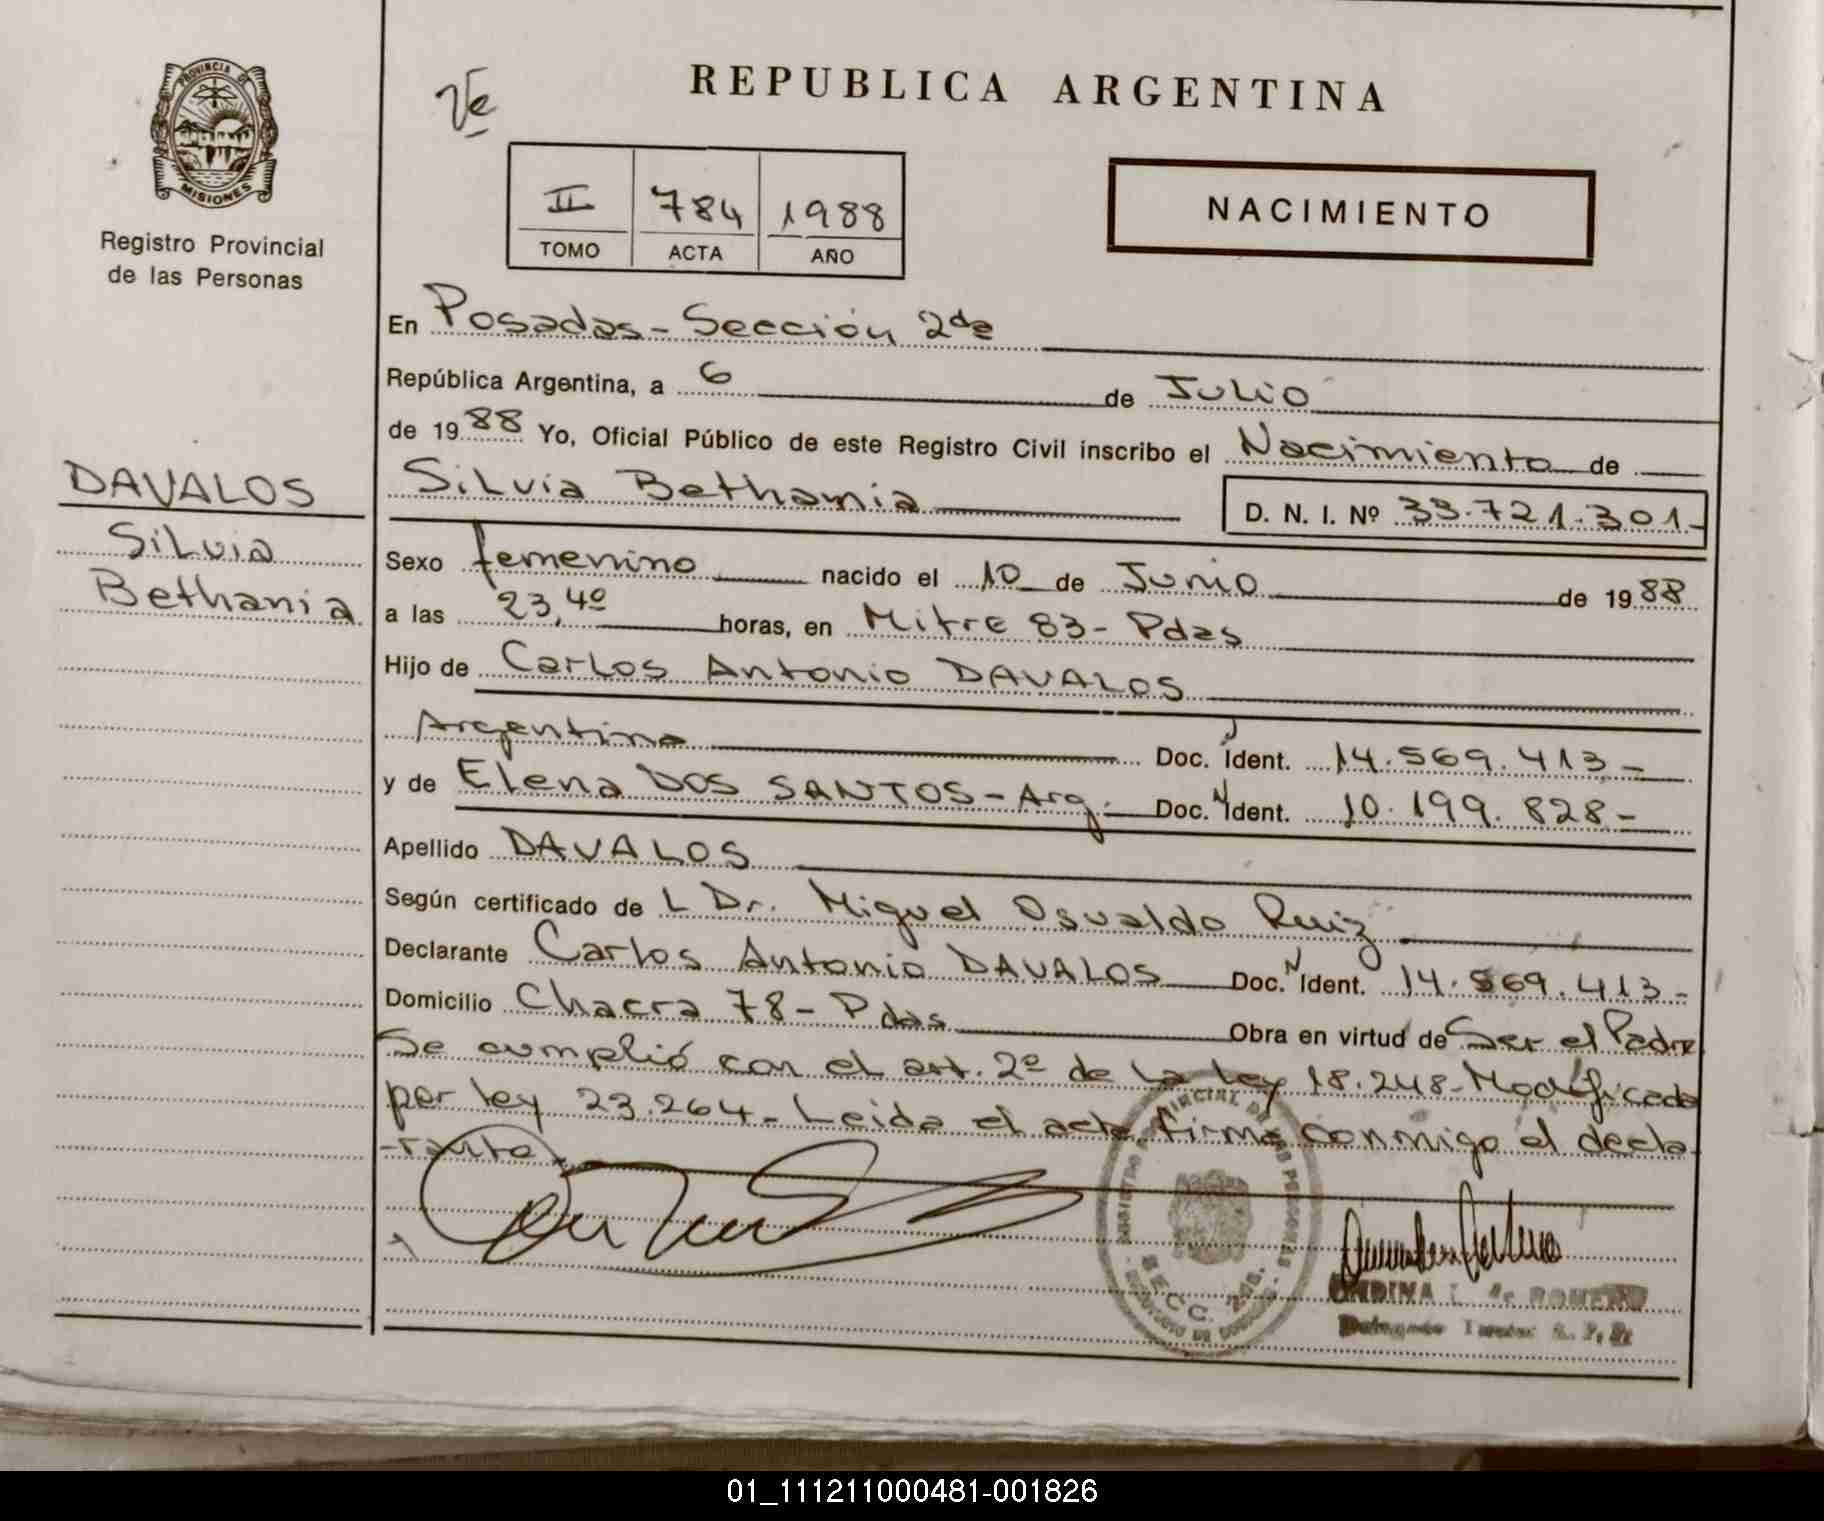 REPUBLICA ARGENTINA
PROVINCIA DE
MISIONES
Registro Provincial
de las Personas
II 784 1988
TOMO ACTA AÑO
NACIMIENTO
En Posadas - Sección 2da
República Argentina, a 6 de Julio
de 1988 Yo, Oficial Público de este Registro Civil inscribo el Nacimiento de
DAVALOS
Silvia
Bethania
Silvia Bethania D. N. I. Nº 33.721.301-
Sexo femenino nacido el 10 de Junio de 1988
a las 23,40 horas, en Mitre 83 - Pdas
Hijo de Carlos Antonio DAVALOS
Argentino Doc. Ident. 14.569.413-
y de Elena DOS SANTOS - Arg. Doc. N Ident. 10.199.828-
Apellido DAVALOS
Según certificado de L Dr. Miguel Osvaldo Ruiz
Declarante Carlos Antonio DAVALOS Doc. N Ident. 14.569.413-
Domicilio Chacra 78 - Pdas Obra en virtud de Ser el Padre
Se cumplió con el art. 2º de la Ley 18.248 - Modificada
por ley 23.264 - Leida el acta, firma conmigo el decla-
-rante
REGISTRO PROVINCIAL DE LAS PERSONAS
SECC. 2
de ROMERO
01_111211000481-001826